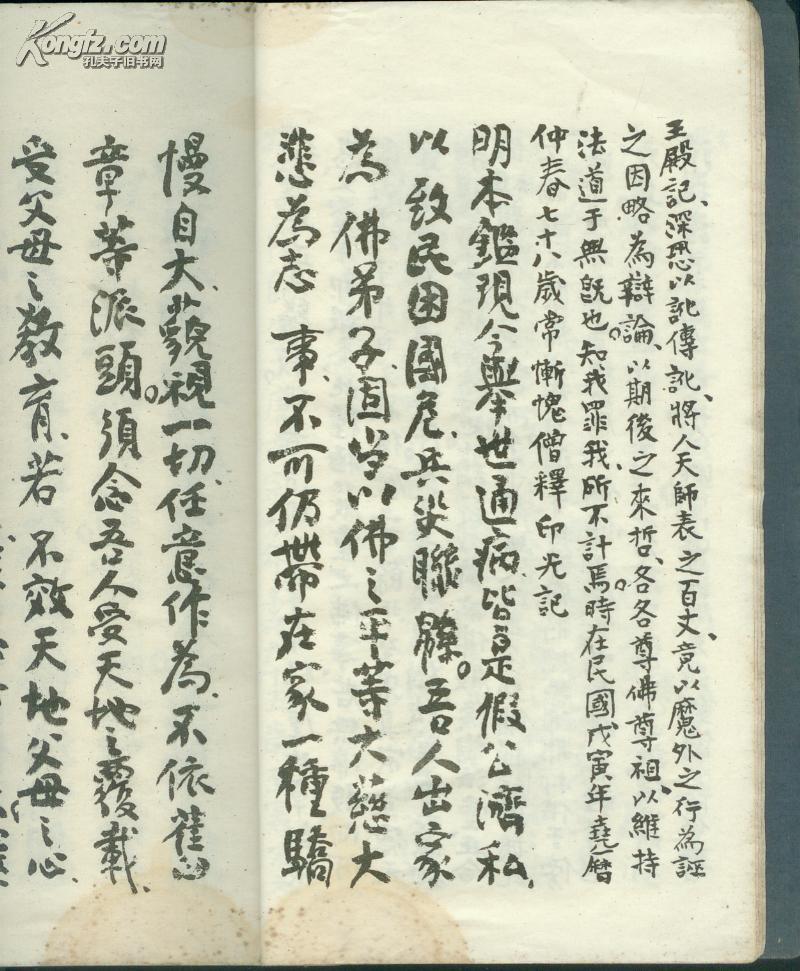 Kongfz.com
孔夫子旧书网
王殿記、深恐以訛傳訛、將人天師表之百丈、竟以魔外之行為誣
之因略為辯論、以期後之來哲、各各尊佛尊祖、以維持
法道于無既也。知我罪我、所不計焉。時在民國戊寅年堯曆
仲春七十八歲常慚愧僧釋印光記
明本鑑現今舉世通病、皆是假公濟私、
以致民困國危、兵災聯緜。吾人出家
為佛弟子、固當以佛之平等大慈大
悲為志事、不可仍帶在家一種驕
慢自大、藐視一切、任意作為、不依舊
章等派頭。須念吾人受天地之覆載、
受父母之教育、若不效天地父母之心、